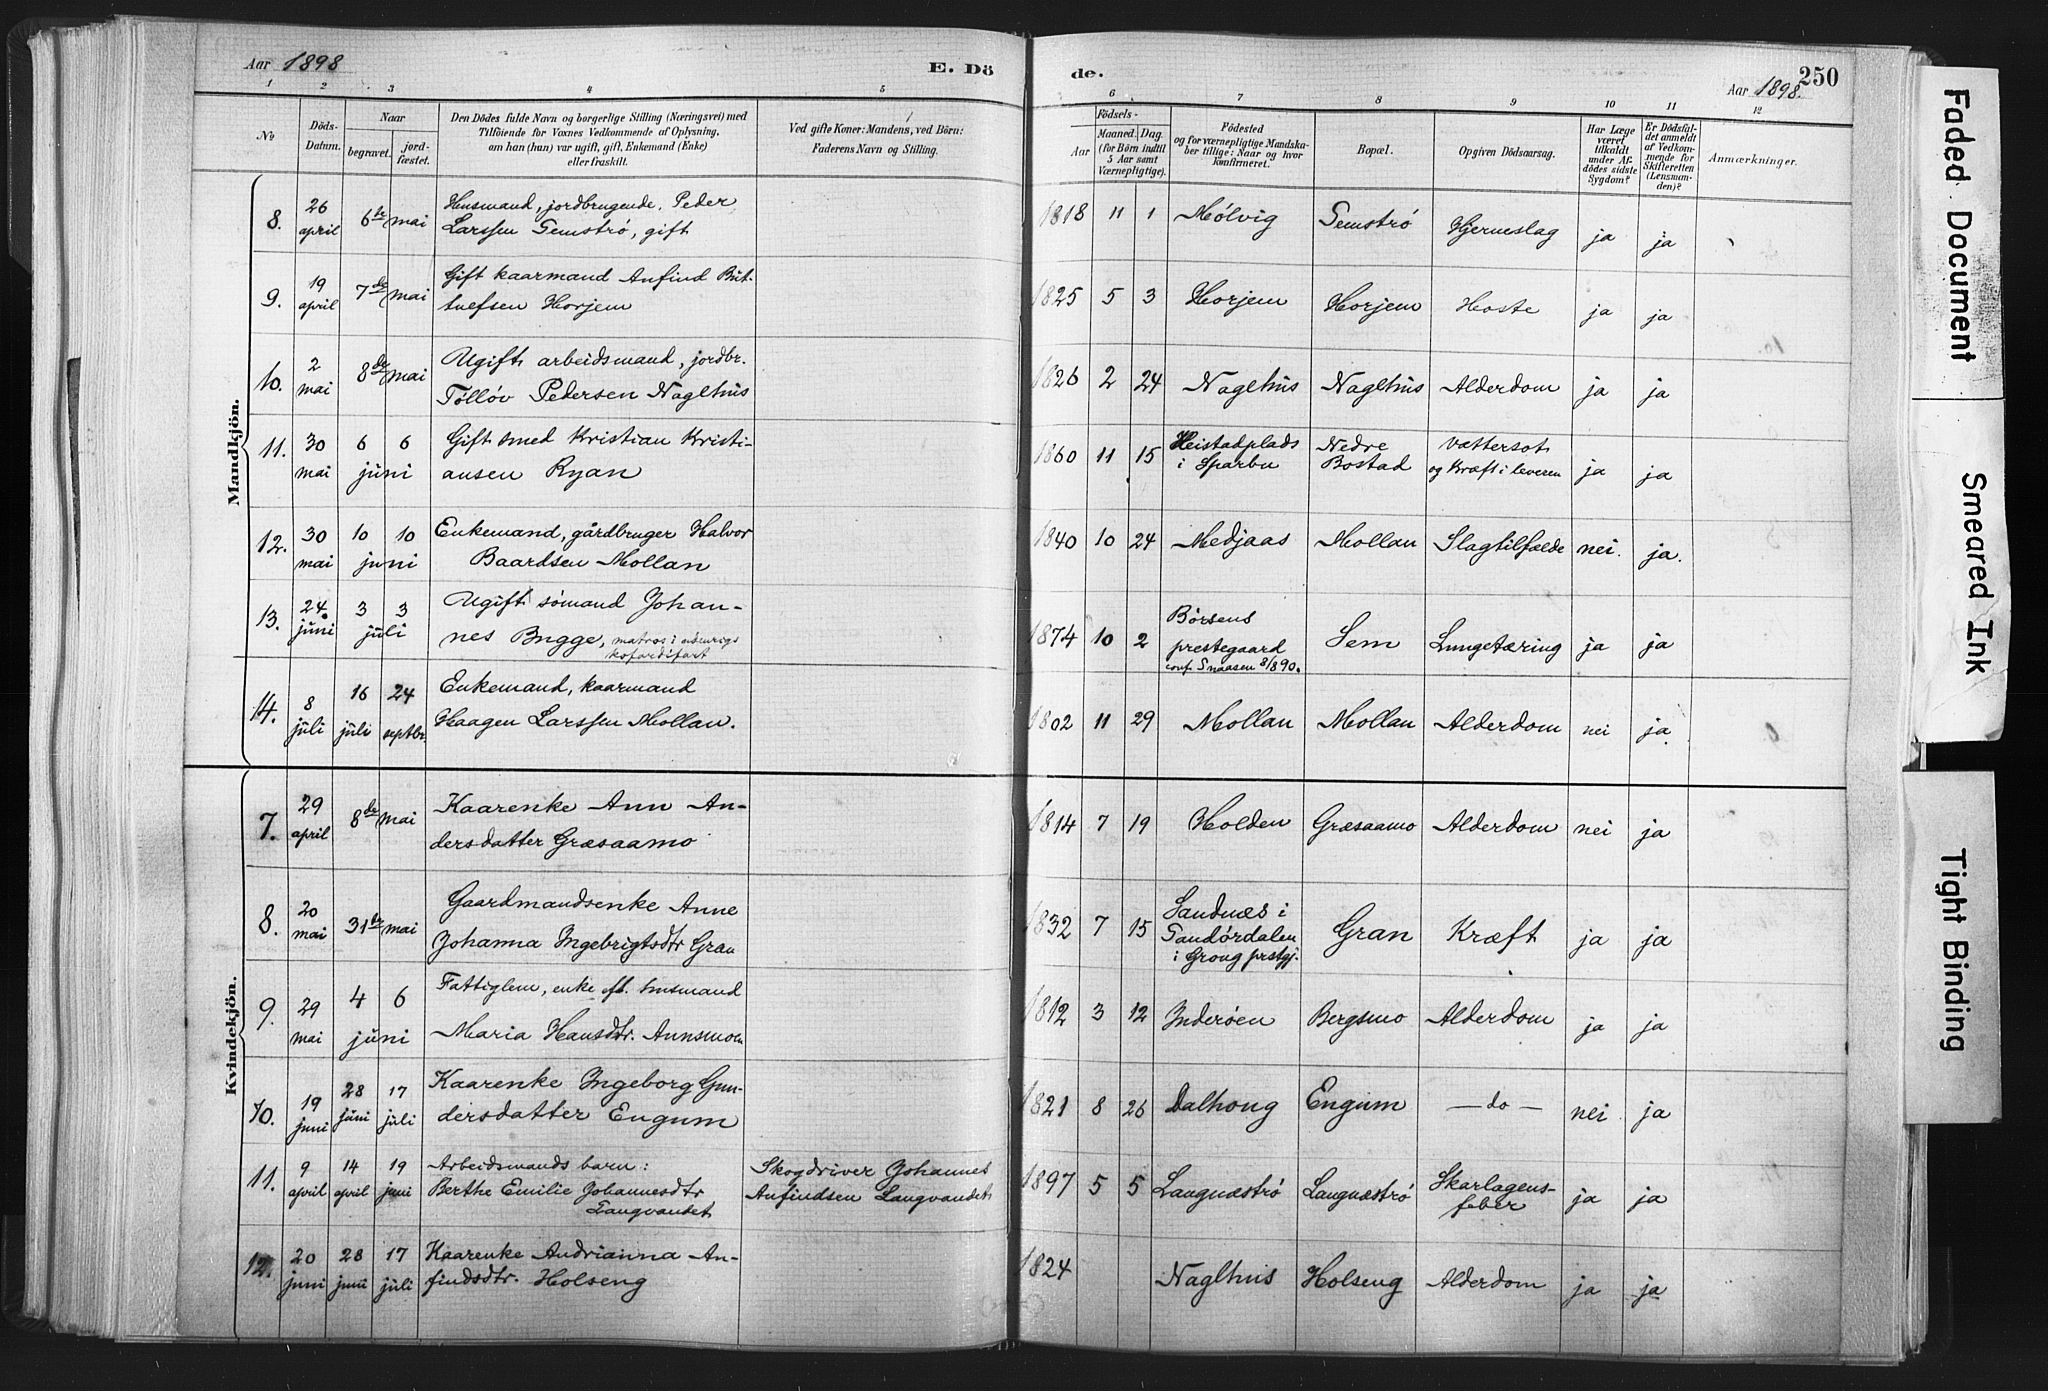 Aar 1898
E. Dö
de.
Aar 1898.
250
1 2 3 4 5 6 7 8 9 10 11 12
No
Döds-
Datum.
Naar
begravet.
jord-
fæstet.
Den Dödes fulde Navn og borgerlige Stilling (Næringsvei) med
Tilföiende for Voxnes Vedkommende af Oplysning,
om han (hun) var ugift, gift, Enkemand (Enke)
eller fraskilt.
Ved gifte Koner: Mandens, ved Börn:
Faderens Navn og Stilling.
Födsels-
Aar
Maaned. Dag.
(for Börn indtil
5 Aar samt
Værnepligtige).
Födested
og for værnepligtige Mandska-
ber tillige: Naar og hvor
konfirmeret.
Bopæl.
Opgiven Dödsaarsag.
Har Læge
været
tilkaldt
under Af-
dödes sidste
Sygdom?
Er Dödsfal-
det anmeldt
af Vedkom-
mende for
Skifteretten
(Lensman-
den)?
Anmærkninger.
Mandkjön.
8. 26 april 6te mai Husmand, jordbrugende, Peder
Larssen Semstrø, gift
1818 11 1 Mølvig Semstrø Hjerneslag ja ja
9. 19 april 7de mai Gift kaarmand Anfind Bot-
tolfsen Horjem
1825 5 3 Horjem Horjem Hoste ja ja
10. 2 mai 8de mai Ugift arbeidsmand, jordbr.
Tølløv Pedersen Naglhus
1826 2 24 Naglhus Naglhus Alderdom ja ja
11. 30 mai 6 6 juni Gift smed Kristian Kristi-
ansen Ryan
1860 11 15 Heistadplads
i Sparbu
Nedre
Bostad
Vattersot
og Kræft i leveren
ja ja
12. 30 mai 10 10 juni Enkemand, gårdbruger Halvor
Baardsen Mollan
1840 10 24 Medjaas Mollan Slagtilfælde nei. ja.
13. 24. juni 3 3 juli Ugift sømand Johan-
nes Bugge, matros i udenrigs
kofardifart
1874 10 2 Børsens
prestegaard
conf. Snaasen 8/8 90.
Sem Lungetæring ja ja
14. 8 juli 16 juli 24 septbr. Enkemand, kaarmand
Haagen Larssen Mollan.
1802 11 29 Mollan Mollan Alderdom nei ja
Kvindekjön.
7. 29 april 8de mai Kaarenke Ann An-
dersdatter Græsaamo
1814 7 19 Holden Græsaamo Alderdom nei ja
8. 20 mai 31te mai Gaardmandsenke Anne
Johanna Ingebrigtsdtr Gran
1832 7 15 Sandnæs i
Sandørdalen
i Grong prstgj.
Gran Kræft ja ja
9. 29 mai 4 6 juni Fattiglem, enke eft. husmand
Maria Hansdtr. Annsmoen
1812 3 12 Inderøen Bergsmo Alderdom ja ja
10. 19 juni 28 juni 17 juli Kaarenke Ingeborg Gun-
dersdatter Engum
1821 8 26 Dalhong Engum — do — nei ja
11. 9 april 14 april 19 juni Arbeidsmands barn:
Berthe Emilie Johannesdtr
Langvandet
Skogdriver Johannes
Anfindsen Langvandet
1897 5 5 Langnæstrø Langnæstrø Skarlagens-
feber
ja ja
12. 20 juni 28 juni 17 juli Kaarenke Andrianna An-
findsdtr. Holseng
1824 Naglhus Holseng Alderdom ja ja
Faded Document
Smeared Ink
Tight Binding